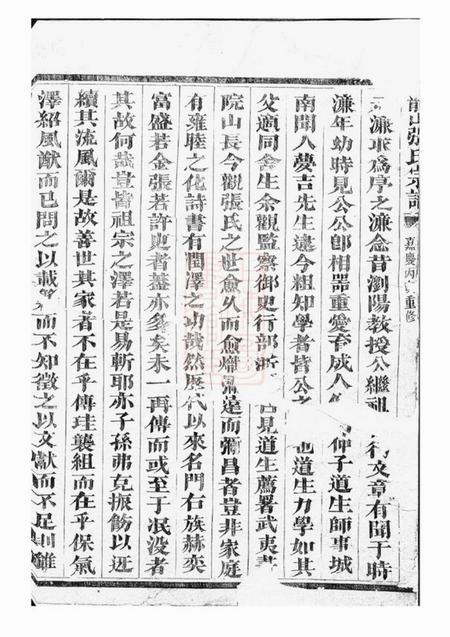 前山張氏宗譜 嘉慶丙 重修
濂取爲序之濂念昔瀏陽教授公繼祖 文章有聞于時
濂年幼時見公公卽相器重愛育成人 仲子道生師事城
南聞人夢吉先生遠今粗知學者皆公之 也道生力學如其
父適同舍生余觀監察御史行部浙 見道生薦署武夷書
院山長今觀張氏之世愈久而愈熾彌遠而彌昌者豈非家庭
有雍睦之化詩書有潤澤之功哉然歷代以來名門右族赫奕
富盛若金張若許史者蓋亦多矣未一再傳而或至于泯没者
其故何哉豈皆祖宗之澤若是易斬耶亦子孫弗克振飭以迓
續其流風爾是故善世其家者不在乎傳珪襲組而在乎保氣
澤紹風猷而已問之以載 而不知徵之以文獻而不足則雖